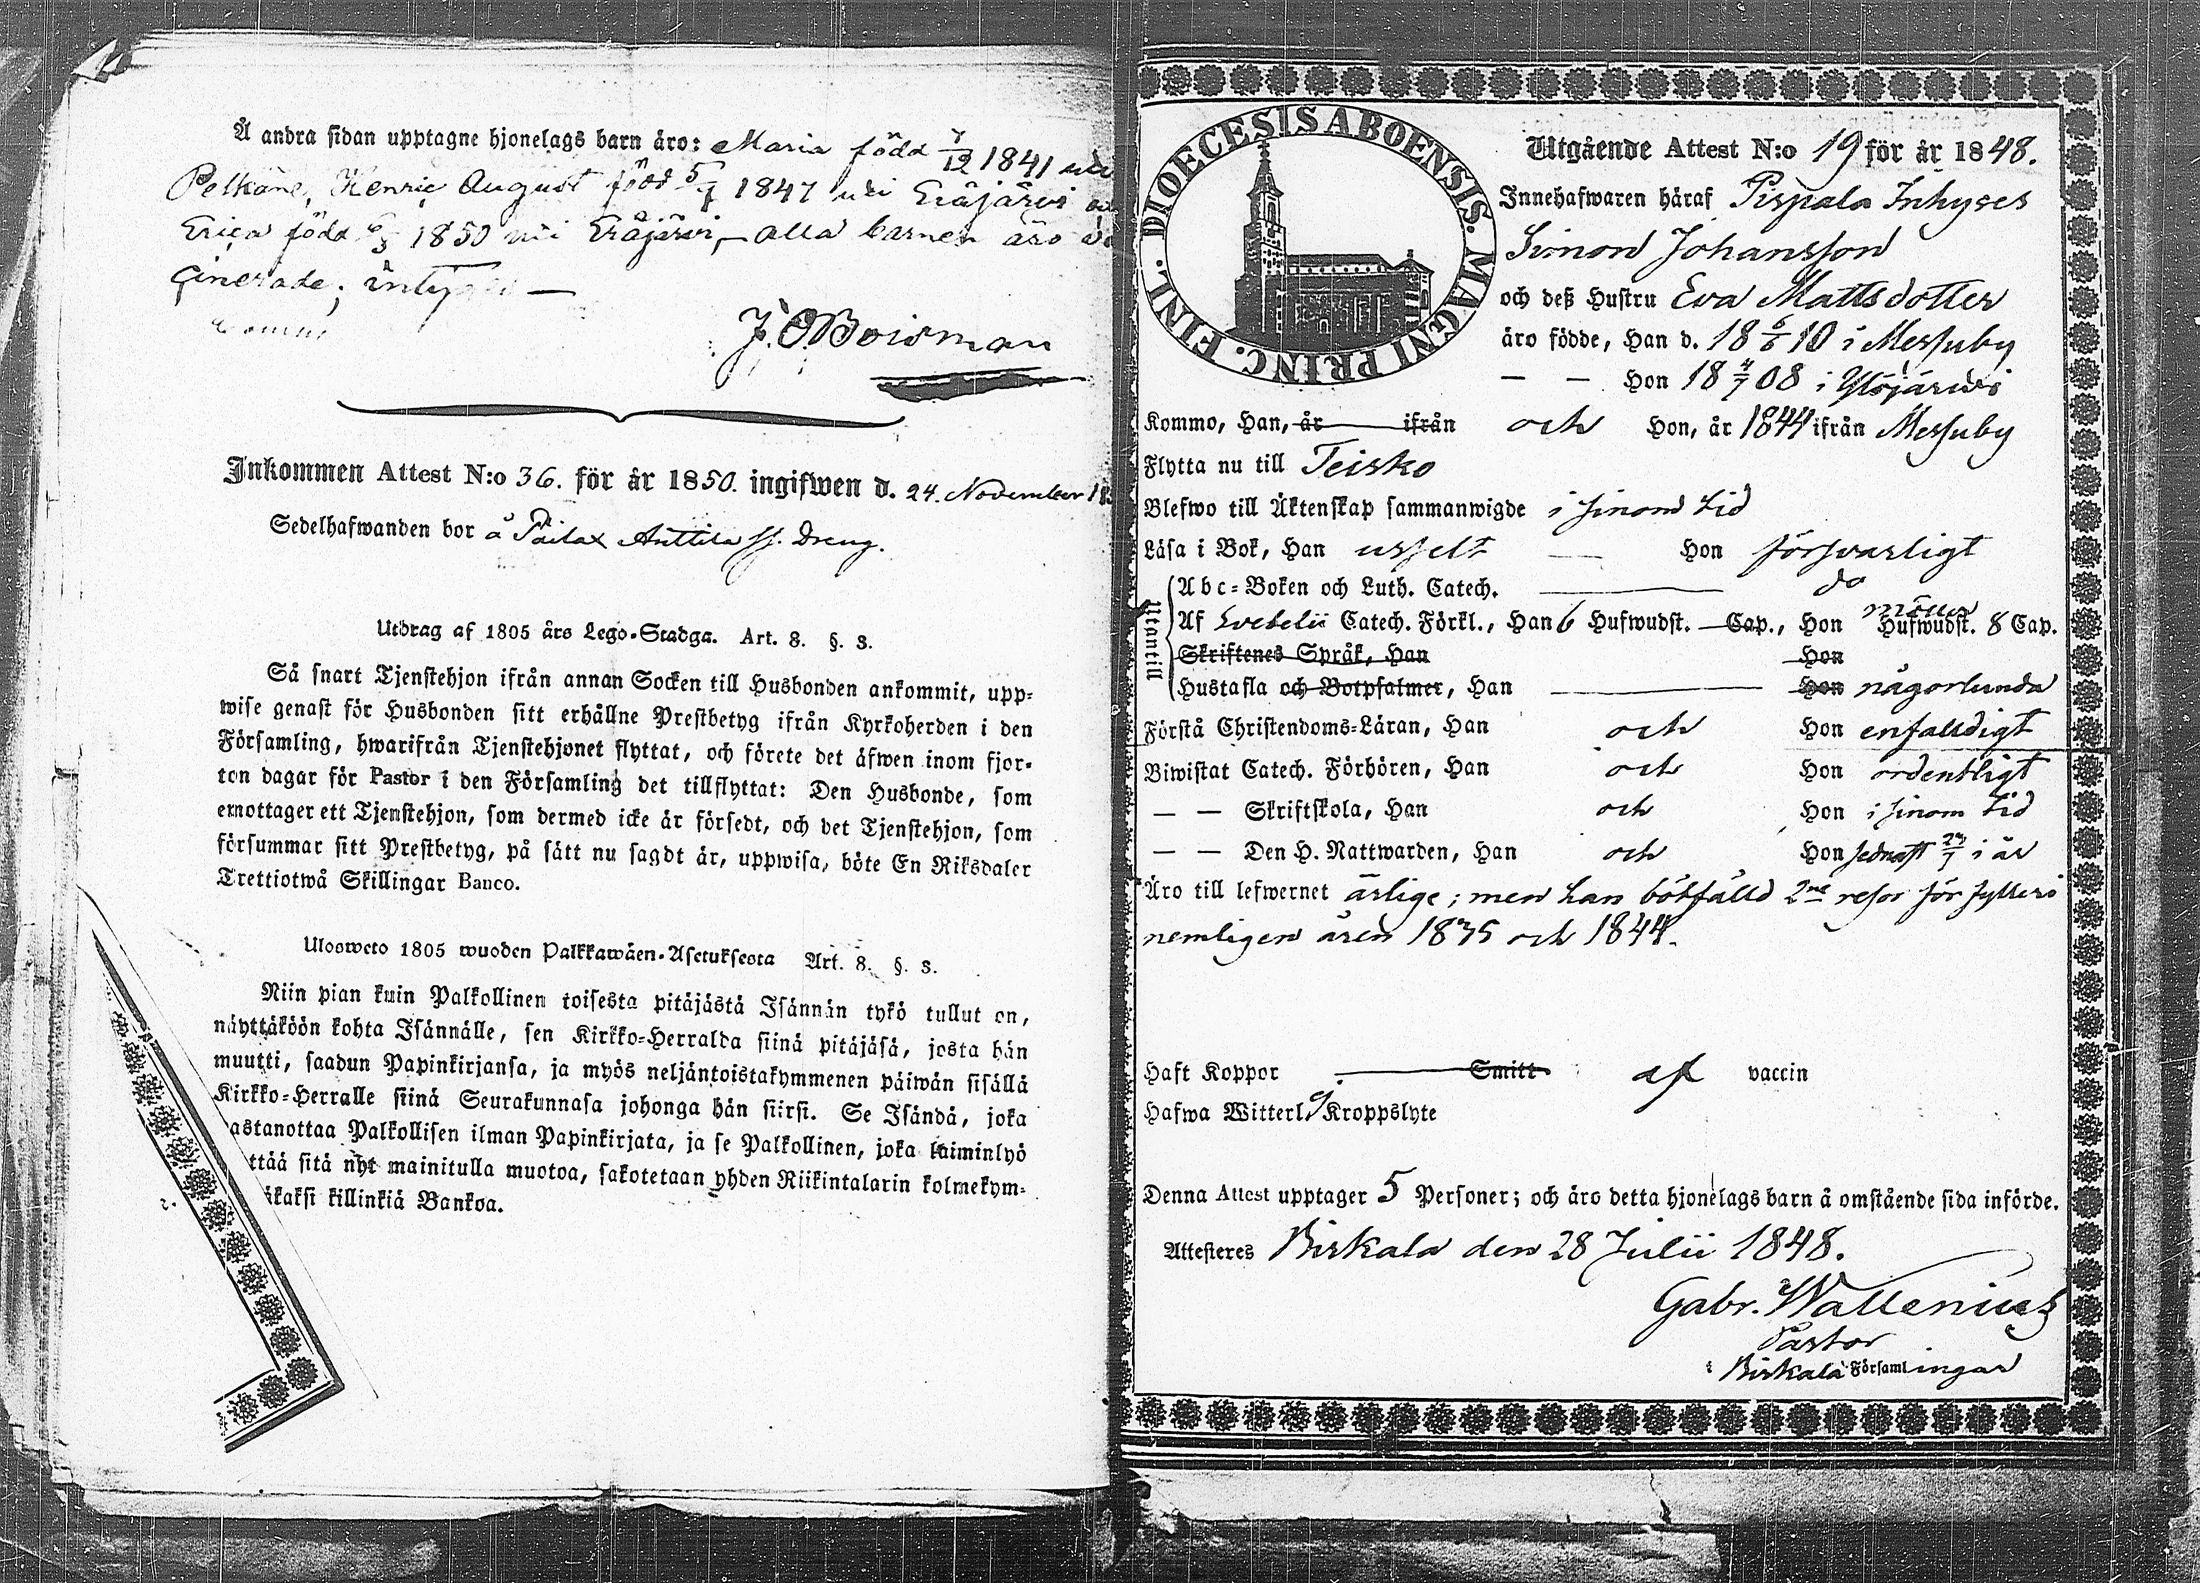 Å andra sidan upptagne hjonelags barn äro: Maria född 7/12 1841 uti
Pelkäne, Henric August född 5/7 1847 uti Eräjärvi
Erica född 6/3 1850 uti Eräjärvi, – alla barnen äro
cinerade; intygar —
J. O. Boisman
Inkommen Attest N:o 36. för år 1850. ingifwen d. 24. November
Sedelhafwanden bor å Pailax Anttila ss. Dreng.
Utdrag af 1805 års Lego-Stadga. Art. 8. §. 3.
Så snart Tjenstehjon ifrån annan Socken till Husbonden ankommit, upp-
wise genast för Husbonden sitt erhållne Prestbetyg ifrån Kyrkoherden i den
Församling, hwarifrån Tjenstehjonet flyttat, och förete det äfwen inom fjor-
ton dagar för Pastor i den Församling det tillflyttat: Den Husbonde, som
emottager ett Tjenstehjon, som dermed icke är försedt, och det Tjenstehjon, som
försummar sitt Prestbetyg, på sätt nu sagdt är, uppwisa, böte En Riksdaler
Trettiotwå Skillingar Banco.
Ulosweto 1805 wuoden Palkkawäen-Asetuksesta Art. 8. §. 3.
Niin pian kuin Palkollinen toisesta pitäjästä Isännän tykö tullut on,
näyttäköön kohta Isännälle, sen Kirkko-Herralda siinä pitäjäsä, josta hän
muutti, saadun Papinkirjansa, ja myös neljäntoistakymmenen päiwän sisällä
Kirkko-Herralle siinä Seurakunnasa johonga hän siirsi. Se Isändä, joka
astanottaa Palkollisen ilman Papinkirjata, ja se Palkollinen, joka laiminlyö
ttää sitä nyt mainitulla muotoa, sakotetaan yhden Riikintalarin kolmekym-
äkaksi killinkiä Bankoa.
DIOECESIS ABOENSIS. MAGNI PRINC. FINL.
Utgående Attest N:o 19 för år 1848.
Innehafwaren häraf Pispala Inhyses
Simon Johansson
och deß Hustru Eva Mattsdotter
äro födde, Han d. 18 6/6 10 i Messuby
— — Hon 18 4/7 08 i Ylöjärvi
Kommo, Han, år ifrån och Hon, år 1844 ifrån Messuby
Flytta nu till Teisko
Blefwo till Äktenskap sammanwigde i sinom tid
Läsa i Bok, Han uselt — Hon försvarligt
Utantill
Abc-Boken och Luth. Catech. — do
Af Svebelii Catech. Förkl., Han 6 Hufwudst. — Cap., Hon Hufwudst. 8 Cap.
Skriftenes Språk, Han Hon
Hustafla och Botpsalmer, Han — Hon någorlunda
Förstå Christendoms-Läran, Han och Hon enfaldigt
Biwistat Catech. Förhören, Han och Hon ordentligt
— — Skriftskola, Han och Hon i sinom tid
— — Den H. Nattwarden, Han och Hon sednast 23/7 i år
Äro till lefwernet ärlige; men han bötfälld 2ne resor för fylleri
nemligen åren 1835 och 1844.
Haft Koppor — Smitt af vaccin
Hafwa Witterl. ej Kroppslyte
Denna Attest upptager 5 Personer; och äro detta hjonelags barn å omstående sida införde.
Attesteres Birkala den 28 Julii 1848.
Gabr. Wallenius
Pastor
i Birkala Församlingar